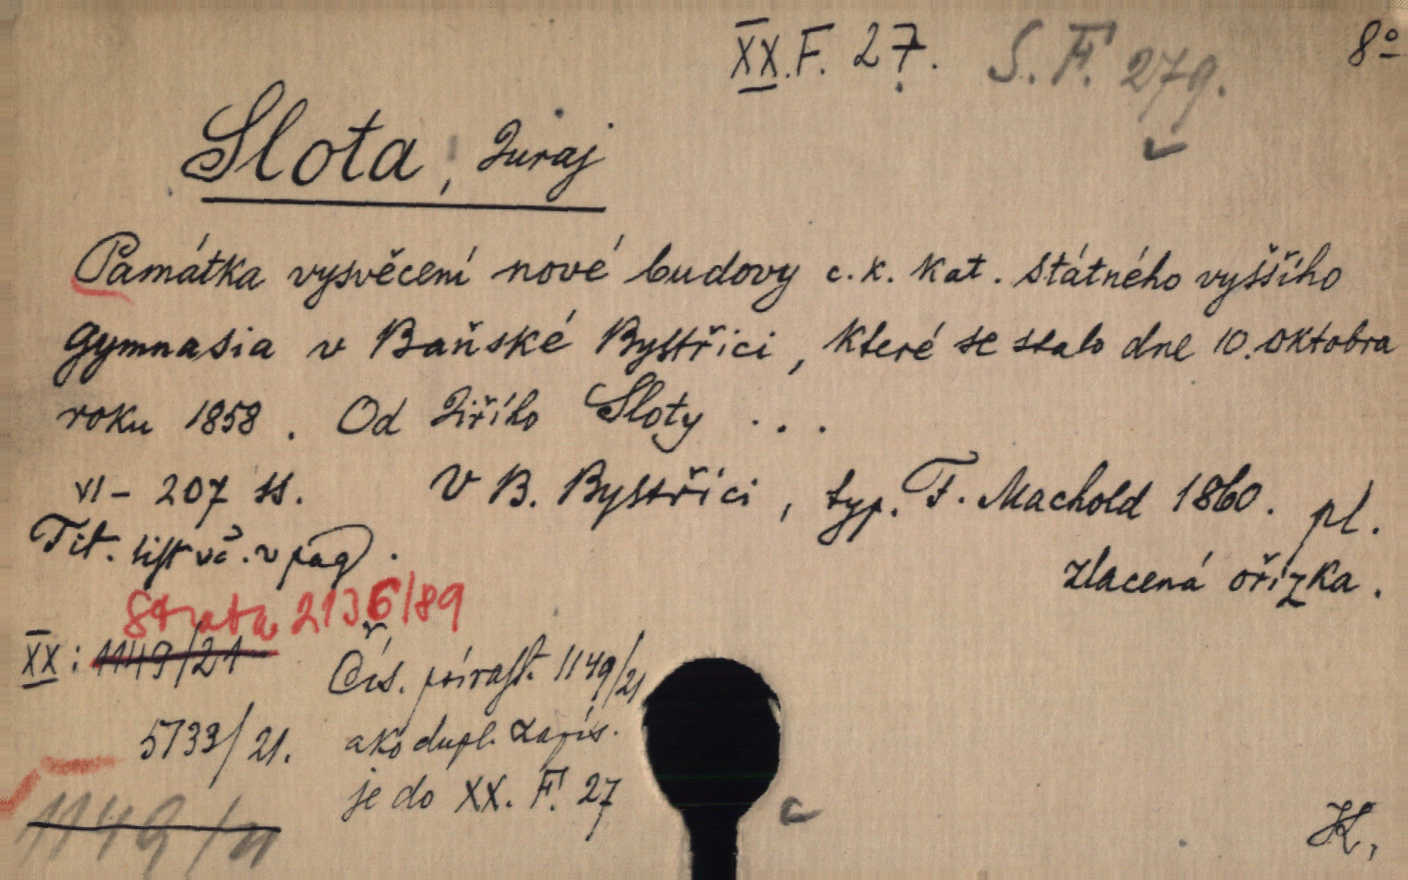 XX.F. 27. S.F. 279. 8º
Slota, Juraj
Památka vysvěcení nové budovy c.k. kat. státného vyššího
gymnasia v Baňské Bystřici, které se stalo dne 10. oktobra
roku 1858. Od Jiřího Sloty ...
VI - 207 ss. V B. Bystřici, typ. F. Machold 1860. pl.
Tit. list vč. v pag. zlacená ořízka.
Strata 2136/89
XX: 1149/21 Čís. prírast. 1149/21
5733/21. ako dupl. zapís.
je do XX. F. 27
1149/21
K.